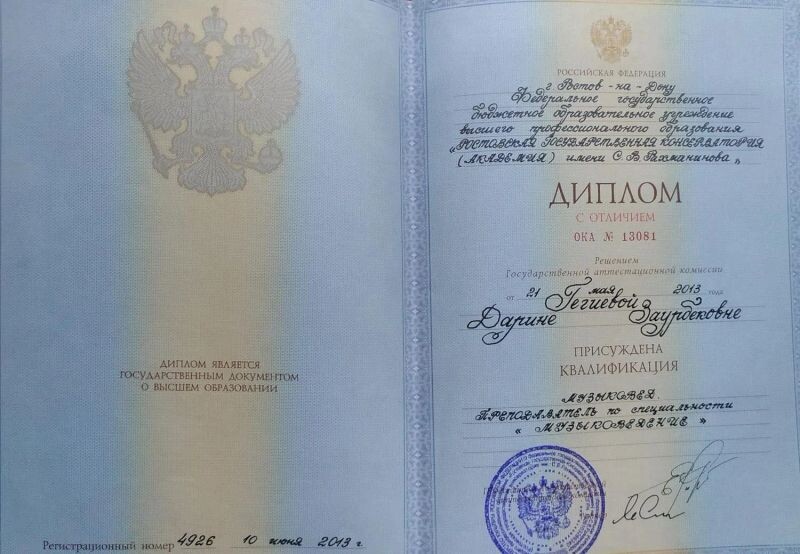 ДИПЛОМ ЯВЛЯЕТСЯ
ГОСУДАРСТВЕННЫМ ДОКУМЕНТОМ
О ВЫСШЕМ ОБРАЗОВАНИИ
Регистрационный номер 4926 10 июня 2013 г.
РОССИЙСКАЯ ФЕДЕРАЦИЯ
г. Ростов-на-Дону
Федеральное государственное
бюджетное образовательное учреждение
высшего профессионального образования
«РОСТОВСКАЯ ГОСУДАРСТВЕННАЯ КОНСЕРВАТОРИЯ
(АКАДЕМИЯ) имени С. В. Рахманинова»
ДИПЛОМ
С ОТЛИЧИЕМ
ОКА № 13081
Решением
Государственной аттестационной комиссии
от 21 мая 2013 года
Гегиевой
Дарине Заурбековне
ПРИСУЖДЕНА
КВАЛИФИКАЦИЯ
МУЗЫКОВЕД.
ПРЕПОДАВАТЕЛЬ по специальности
«МУЗЫКОВЕДЕНИЕ»